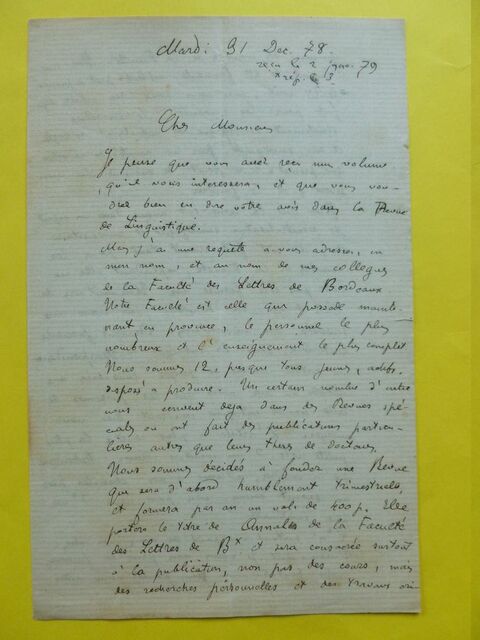 Mardi 31 Dec. 78.
reçu le 2 janv. 79
rép. le 3
Cher Monsieur
Je pense que vous avez reçu mon volume,
qu'il vous interessera, et que vous vou-
drez bien en dire votre avis dans la Revue
de Linguistique.
Mais j'ai une requête a vous adresser, en
mon nom, et au nom de mes collegues
de la Faculté des Lettres de Bordeaux
Notre Faculté est celle qui possède mainte-
nant en province, le personnel le plus
nombreux et l'enseignement le plus complet
Nous sommes 12, presque tous jeunes, actifs,
disposés a produire. Un certain nombre d'entre
nous ecrivent deja dans des Revues spé-
ciales ou ont fait des publications particu-
lieres autres que leurs theses de doctorat.
Nous sommes décidés à fonder une Revue
qui sera d'abord humblement trimestrielle,
et formera par an un vol. de 400 p. Elle
portera le titre de Annales de la Faculté
des Lettres de Bx et sera consacrée surtout
à la publication, non pas des cours, mais
des recherches personnelles et des travaux ori-